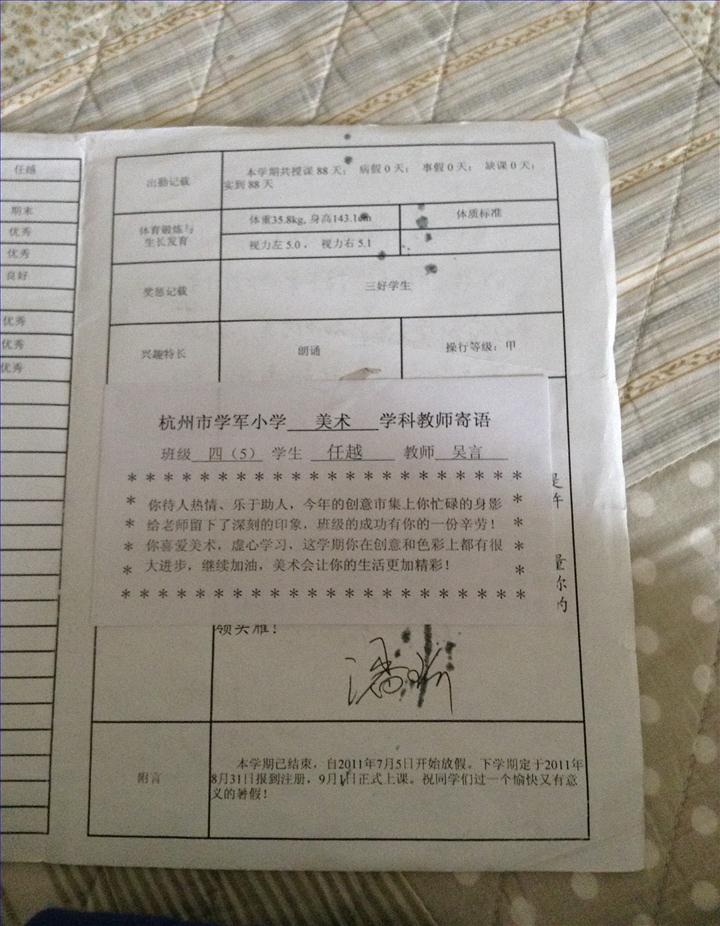 任越
期末
优秀
优秀
良好
优秀
优秀
优秀
出勤记载
本学期共授课 88 天; 病假 0 天; 事假 0 天; 缺课 0 天;
实到 88 天
体育锻炼与
生长发育
体重35.8kg, 身高143.1cm
体质标准
视力左 5.0 , 视力右 5.1
奖惩记载
三好学生
兴趣特长
朗诵
操行等级: 甲
杭州市学军小学 美术 学科教师寄语
班级 四（5） 学生 任越 教师 吴言
* * * * * * * * * * * * * * * * * * * * * *
* 你待人热情、乐于助人，今年的创意市集上你忙碌的身影 *
* 给老师留下了深刻的印象，班级的成功有你的一份辛劳！ *
* 你喜爱美术，虚心学习，这学期你在创意和色彩上都有很 *
* 大进步，继续加油，美术会让你的生活更加精彩！ *
* * * * * * * * * * * * * * * * * * * * * *
量
你
的
领头雁！
附言
本学期已结束，自2011年7月5日开始放假。下学期定于2011年
8月31日报到注册，9月1日正式上课。祝同学们过一个愉快又有意
义的暑假！